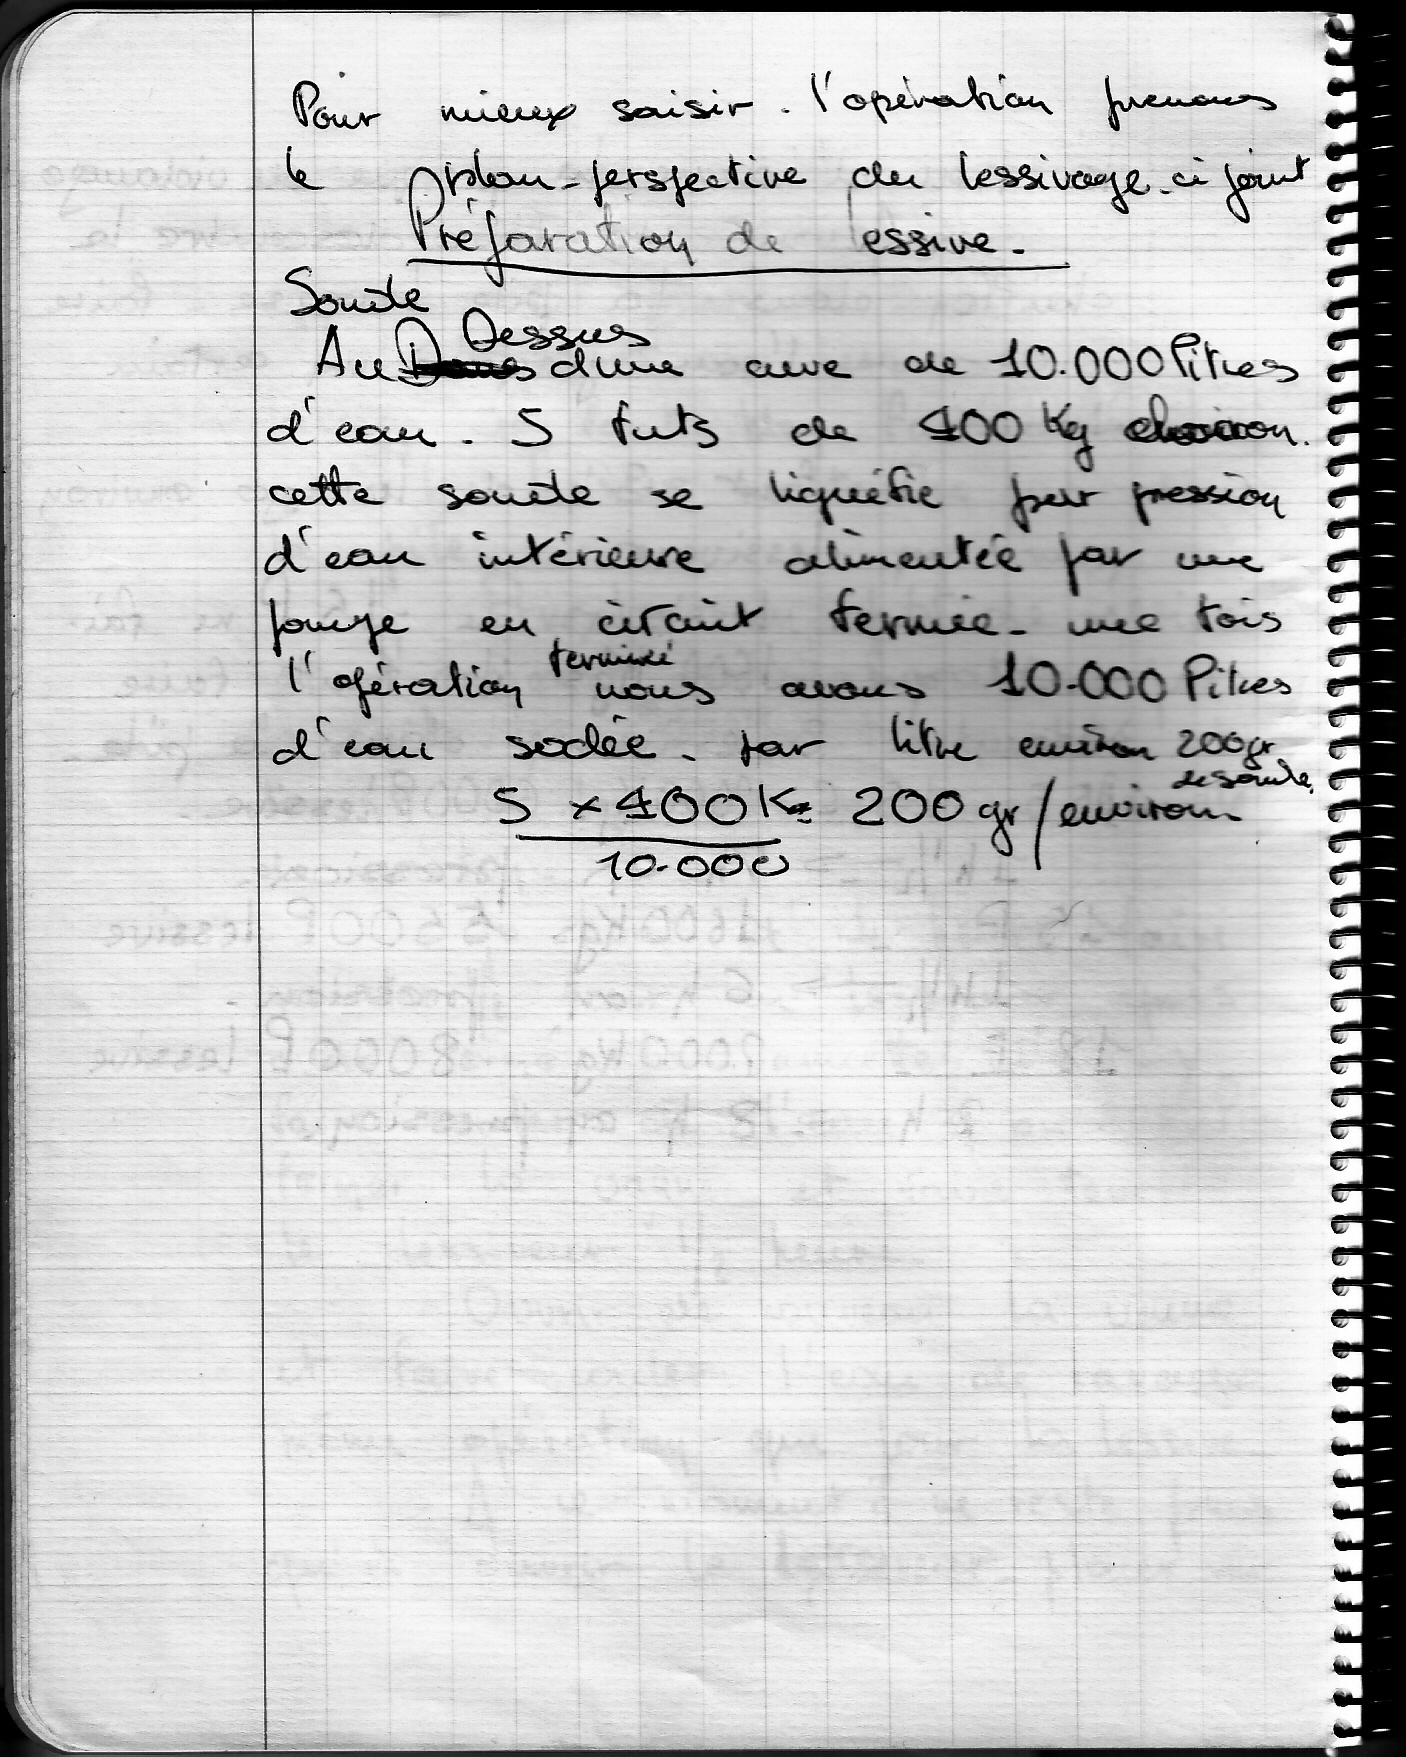 Pour mieux saisir. l'opération prenons
le plan-perspective du lessivage-ci joint
Préparation de lessive.
Soude
Au Dessus d'une cuve de 10.000 litres
d'eau. 5 futs de 400 Kg environ.
cette soude se liquéfie par pression
d'eau intérieure alimentée par une
pompe en circuit fermée. une fois
l'opération terminé nous avons 10.000 litres
d'eau sodée. par litre environ 200gr
de soude.
5 x 400K = 200 gr/environ
10.000